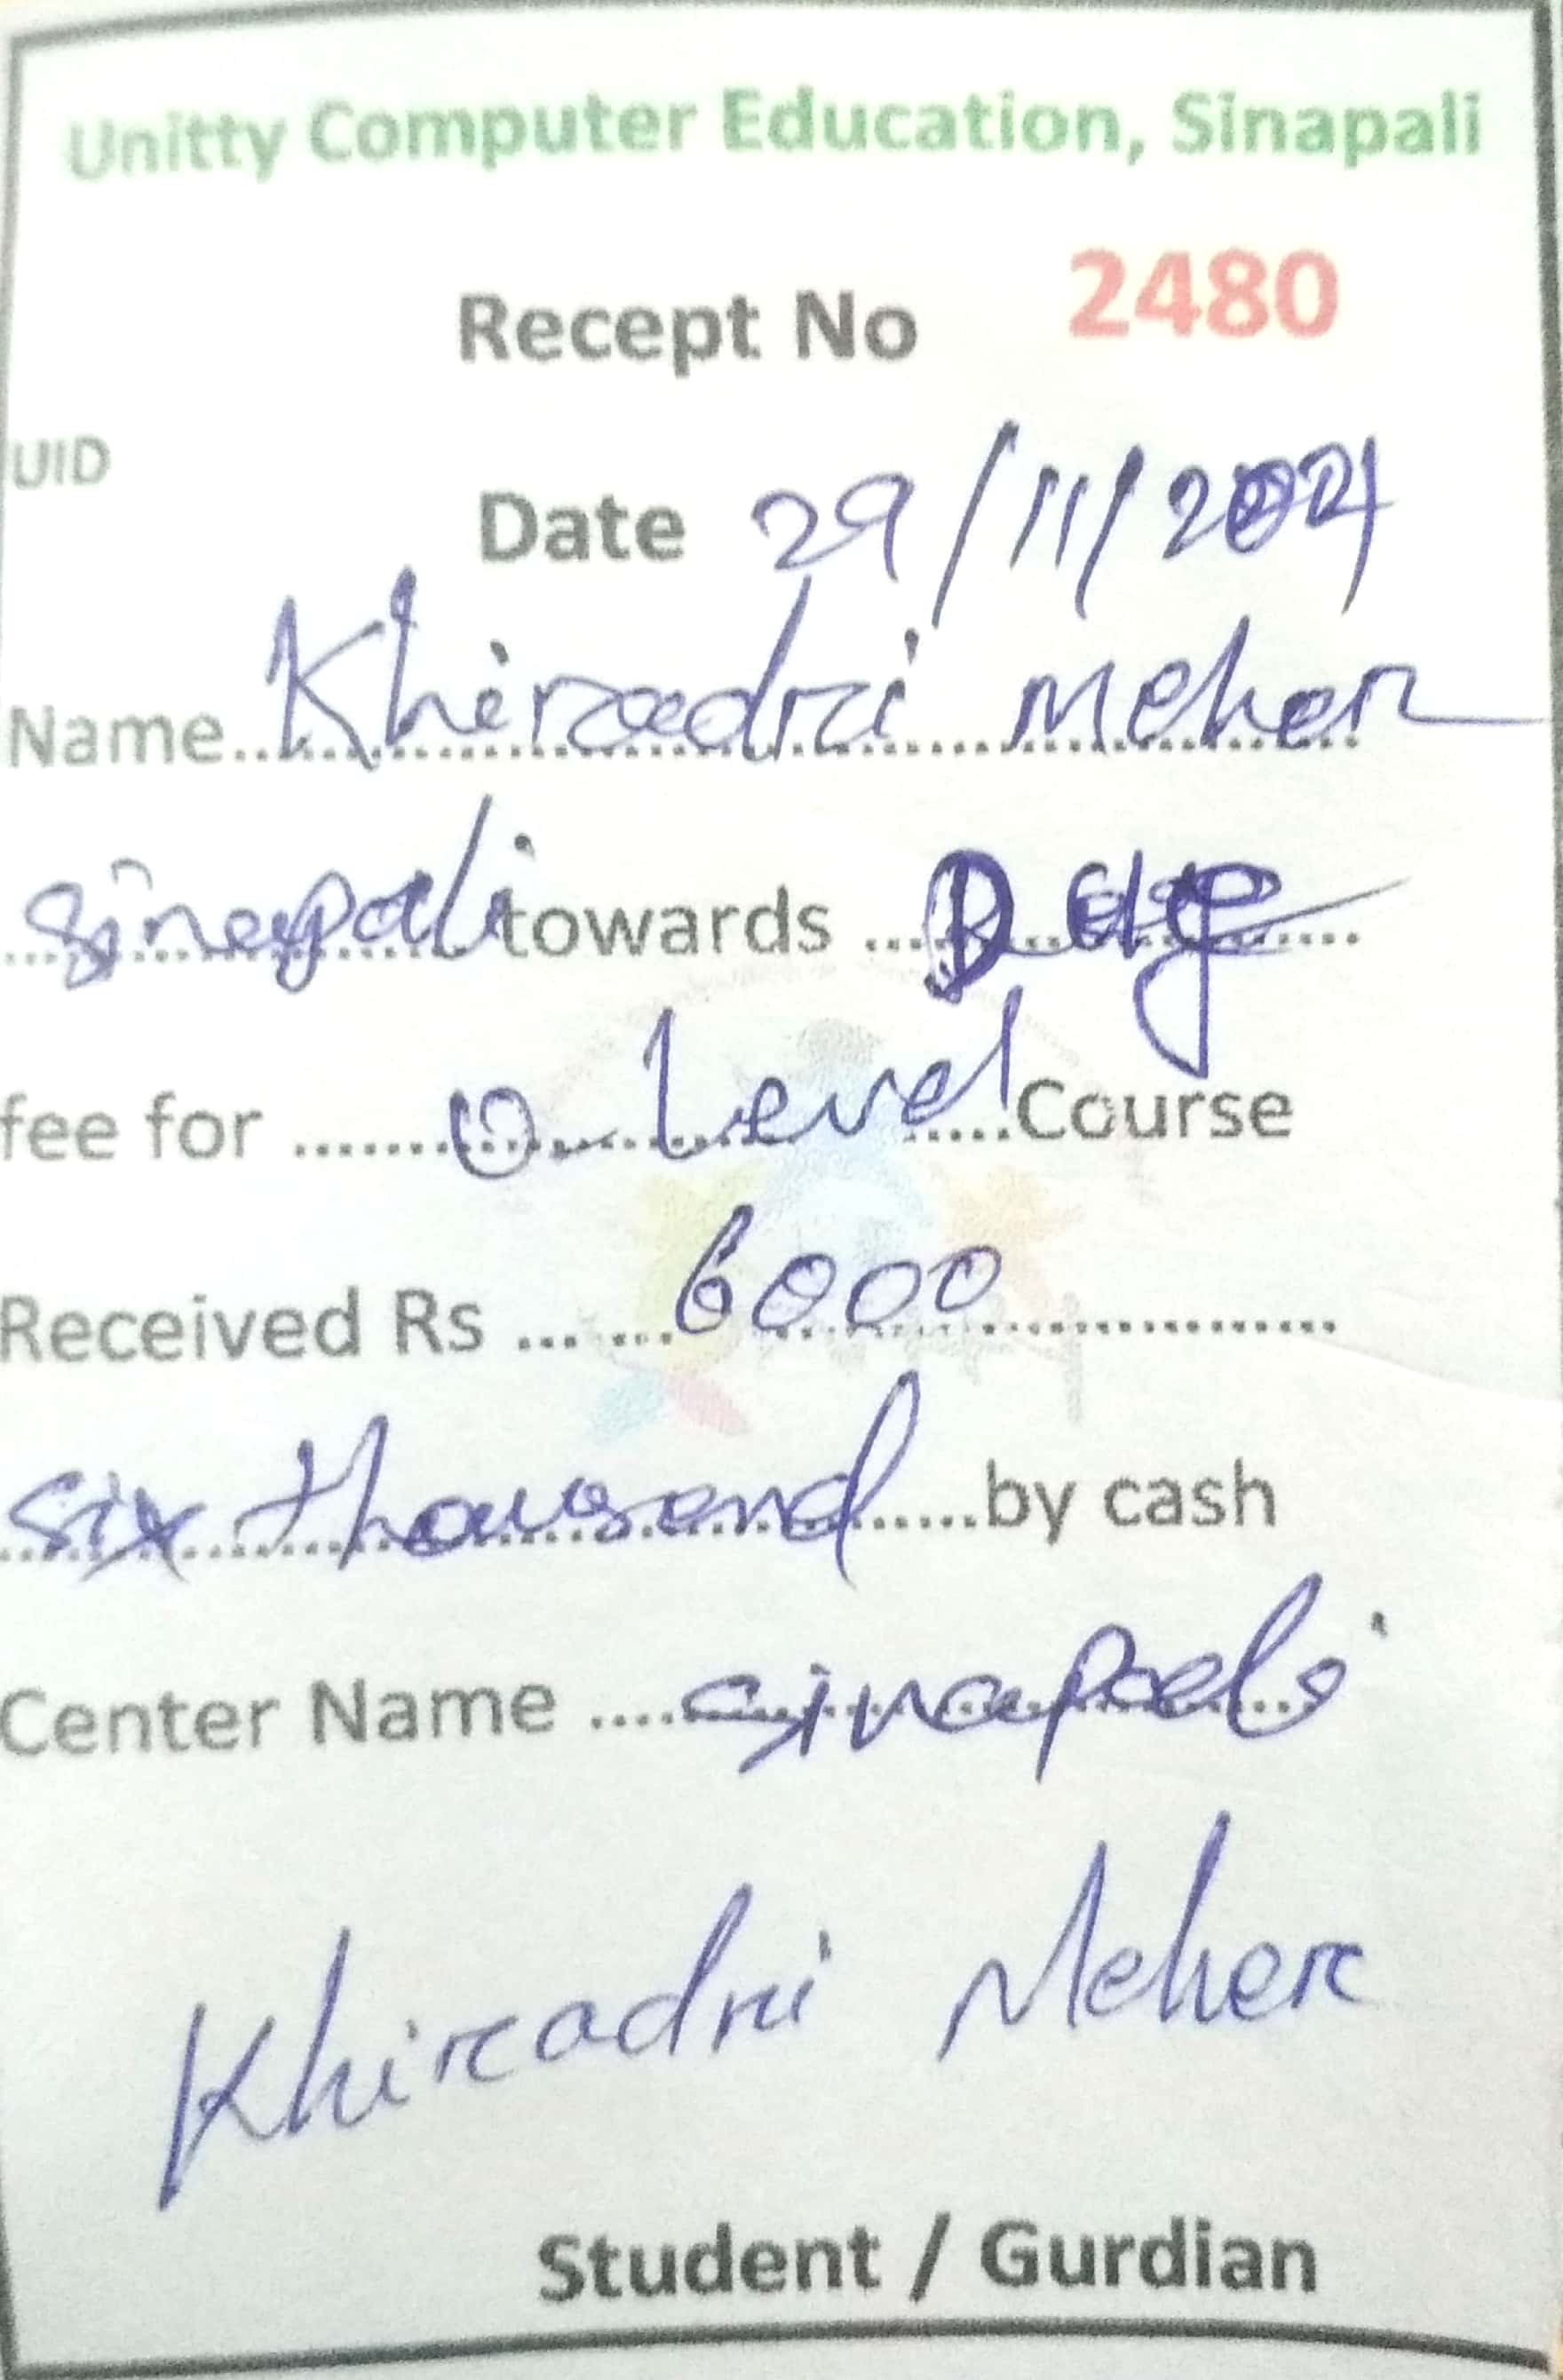 Unitty Computer Education, Sinapali
Recept No 2480
UID
Date 29/11/
Name Khiradri Meher
Sinapali towards
fee for O Level Course
Received Rs 6000
Six thousand by cash
Center Name Sinapali
Khiradri Meher
Student / Gurdian